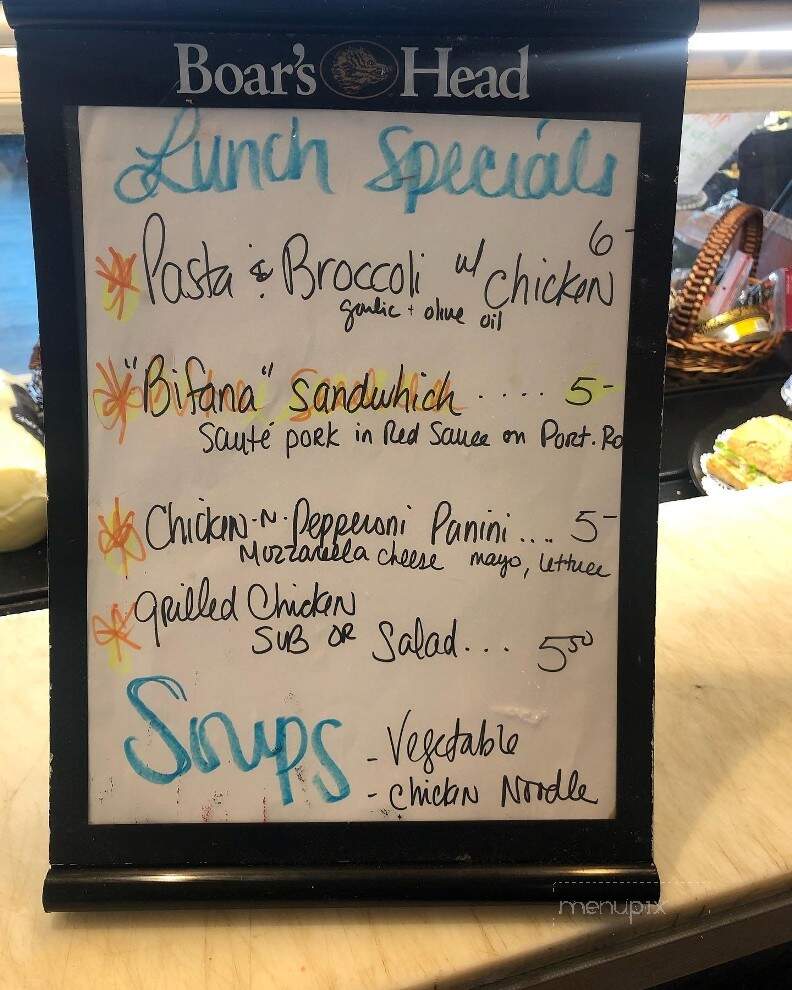 Boar's Head
Lunch Specials
6-
Pasta & Broccoli w/ chicken
garlic + olive oil
"Bifana" Sandwhich .... 5-
Sauté pork in Red Sauce on Port. Ro
Chicken-N-Pepperoni Panini... 5-
Mozzarella cheese mayo, lettuce
grilled Chicken
SUB OR Salad... 5.50
Soups
- Vegetable
- chicken Noodle
menupix